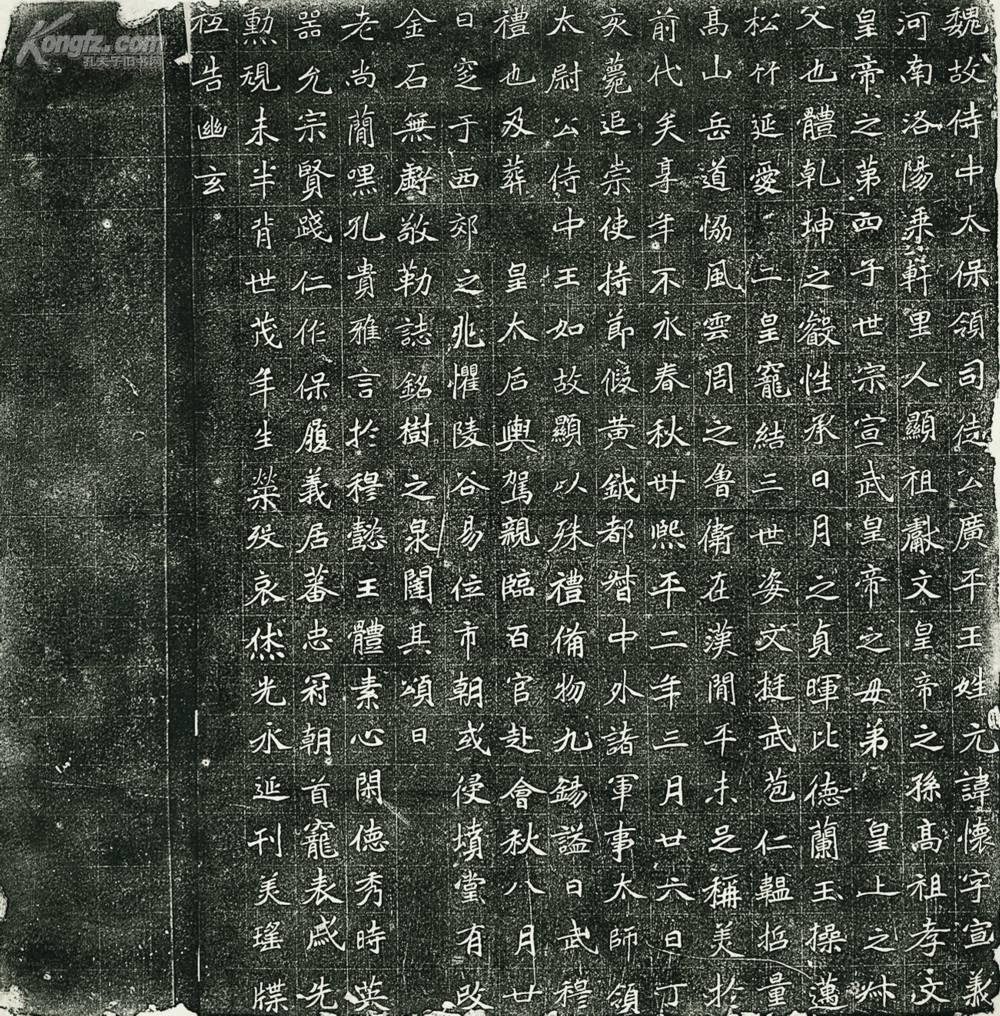 魏故侍中太保領司徒公廣平王姓元諱懷字宣義
河南洛陽乘軒里人顯祖獻文皇帝之孫高祖孝文
皇帝之第四子世宗宣武皇帝之母弟皇上之叔
父也體乾坤之叡性承日月之貞暉比德蘭玉操邁
松竹延愛二皇寵結三世姿文挺武苞仁韞哲量
高山岳道協風雲周之魯衛在漢間平未足稱美於
前代矣享年不永春秋卅熙平二年三月廿六日丁
亥薨追崇使持節假黃鉞都督中外諸軍事太師領
太尉公侍中王如故顯以殊禮備物九錫謚曰武穆
禮也及葬皇太后輿駕親臨百官赴會秋八月廿
日窆于西郊之兆懼陵谷易位市朝或侵墳堂有改
金石無虧敬勒誌銘樹之泉闥其頌曰
老尚簡嘿孔貴雅言於穆懿王體素心閑德秀時英
器允宗賢踐仁作保履義居蕃忠冠朝首寵表戚先
勳頑未半背世茂年生榮歿哀休光永延刊美瑤牒
柩告幽玄
Kongfz.com
孔夫子旧书网